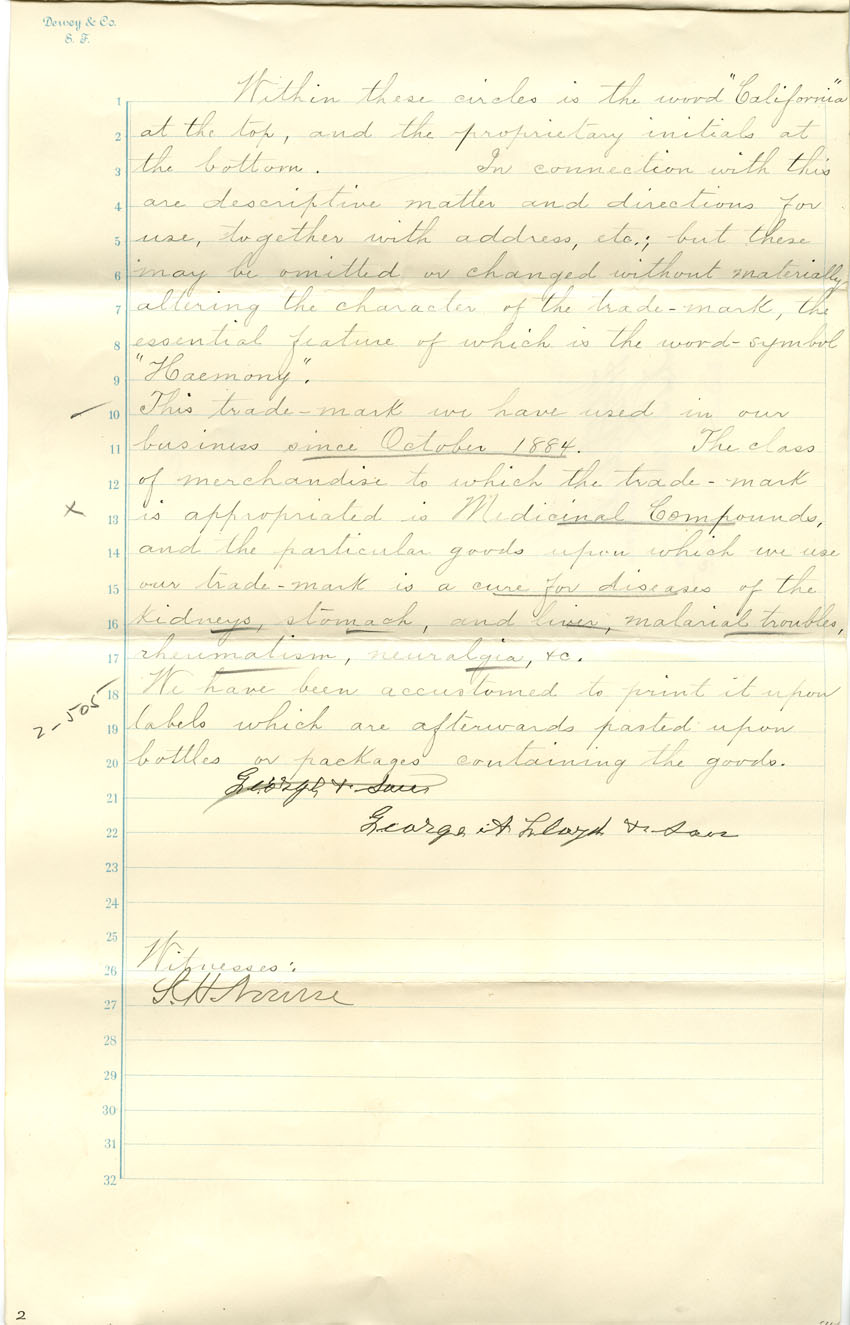 Dewey & Co.
S. F.
1 Within these circles is the word "California"
2 at the top, and the proprietary initials at
3 the bottom. In connection with this
4 are descriptive matter and directions for
5 use, together with address, etc.; but these
6 may be omitted or changed without materially
7 altering the character of the trade-mark, the
8 essential feature of which is the word-symbol
9 "Haemony".
10 This trade-mark we have used in our
11 business since October 1884. The class
12 of merchandise to which the trade-mark
x
13 is appropriated is Medicinal Compounds,
14 and the particular goods upon which we use
15 our trade-mark is a cure for diseases of the
16 kidneys, stomach, and liver, malarial troubles,
17 rheumatism, neuralgia, &c.
18 We have been accustomed to print it upon
2-505
19 labels which are afterwards pasted upon
20 bottles or packages containing the goods.
21 George & Sons
22 George A Lloyd & Sons
23
24
25
26 Witnesses:
27 S. H. Nourse
28
29
30
31
32
2